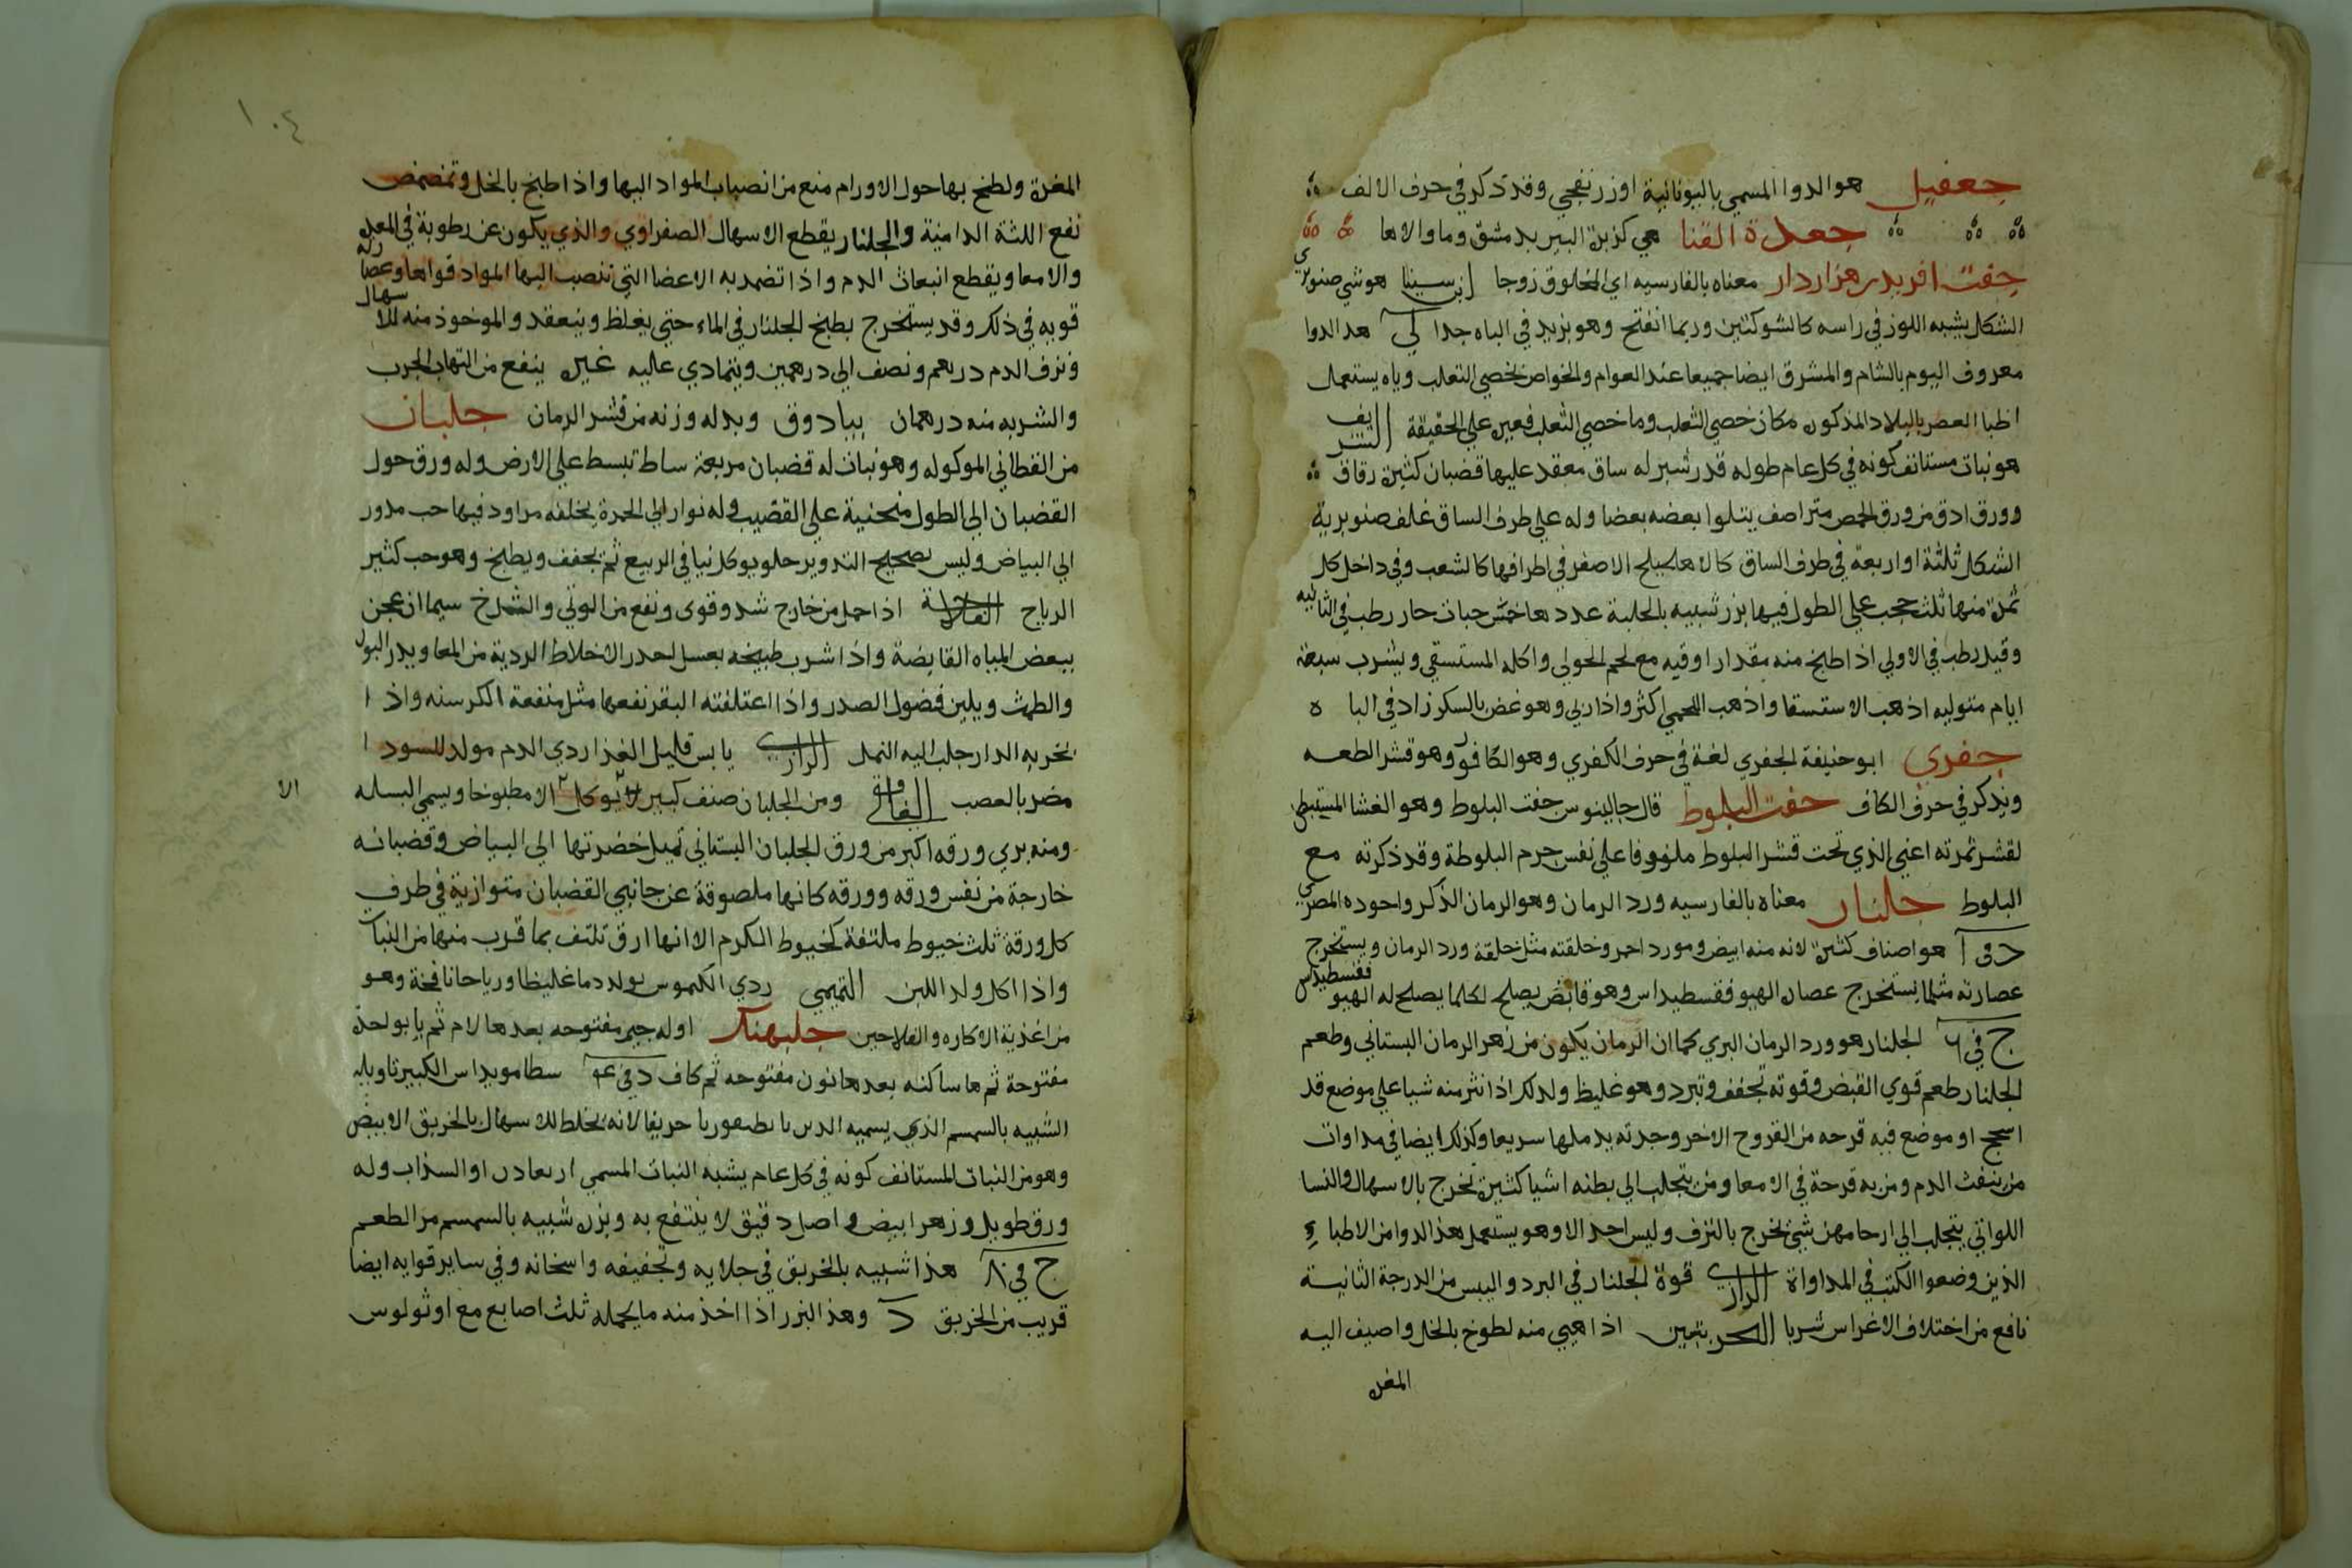 جعفيل هو الدوا المسمي باليونانية اوزرنفجي وقد ذكر في حرف الالف
جعدة القنا هي كزبرة البير بدمشق وما والاها
جفت افريد هزاردار معناه بالفارسيه اي المخلوق زوجا ابن سينا هو شي صنوبري
الشكل يشبه اللوز في راسه كالشوكتين وربما انفتح وهو يزيد في الباه جدا لي هذا الدوا
معروف اليوم بالشام والمشرق ايضا جميعا عند العوام والخواص بخصي الثعلب وياه يستعمل
اطبا العصر بالبلاد المذكوره مكان خصي الثعلب وما خصي الثعلب فعين علي الحقيقة الشريف
هو نبات مستانف كونه في كل عام طوله قدر شبر له ساق معقد عليها قضبان كثيرة رقاق
وورق ادق من ورق الحمص متراصف يتلوا بعضه بعضا وله علي طرف الساق غلف صنوبرية
الشكل ثلثة او اربعة في طرف الساق كالاهليلج الاصفر في اطرافها كالشعب وفي داخل كل
ثمرة منها ثلث حجب علي الطول فيها بزر شبيه بالحلبة عددها خمس حبات حار رطب في الثانيه
وقيل رطب في الاولي اذا طبخ منه مقدار اوقيه مع لحم الحولي واكله المستسقي ويشرب سبعة
ايام متواليه اذهب الاستسقا واذهب اللحمي اكثر واذا ربي وهو غض بالسكر زاد في الباه
جفري ابو حنيفة الجفري لغة في حرف الكفري وهو الكافور وهو قشر الطعه
ويذكر في حرف الكاف جفت البلوط قال جالينوس جفت البلوط وهو الغشا المستبطن
لقشر ثمرته اعني الذي تحت قشر البلوط ملفوفا علي نفس جرم البلوطة وقد ذكرته مع
البلوط جلنار معناه بالفارسيه ورد الرمان وهو الرمان الذكر واجوده المصري
د في آ هو اصناف كثيرة لانه منه ابيض ومورد احمر وخلقته مثل خلقة ورد الرمان ويستخرج
عصارته مثلما يستخرج عصارة الهيوفقسطيداس وهو قابض يصلح لكلما يصلح له الهيوفقسطيداس
ج في ٦ الجلنار هو ورد الرمان البري كما ان الرمان يكون من زهر الرمان البستاني وطعم
الجلنار طعم قوي القبض وقوته تجفف وتبرد وهو غليظ ولذلك اذا نثر منه شيا علي موضع قد
اسحج او موضع فيه قرحه من القروح الاخر وجدته يدملها سريعا وكذلك ايضا في مداوات
من ينفث الدم ومن به قرحة في الامعا ومن يتجلب الي بطنه اشيا كثيرة تخرج بالاسهال والنسا
اللواتي يتجلب الي ارحامهن شي يخرج بالنزف وليس احد الا وهو يستعمل هذا الدوا من الاطباء
الذين وضعوا الكتب في المداواة الرازي قوة الجلنار في البرد واليبس من الدرجة الثانية
نافع من اختلاف الاغراس شربا البحريتين اذا هيي منه لطوخ بالخل واضيف اليه
المغرة
١٠٤
المغرة ولطخ بها حول الاورام منع من انصباب المواد اليها واذا طبخ بالخل وتمضمض
نفع اللثة الدامية والجلنار يقطع الاسهال الصفراوي والذي يكون عن رطوبة في المعده
والامعا ويقطع انبعاث الدم واذا تضمد به الاعضا التي تنصب اليها المواد قواها وعصارته
قويه في ذلك وقد يستخرج بطبخ الجلنار في الماء حتي يغلظ وينعقد والموخوذ منه للاسهال
ونزف الدم درهم ونصف الي درهمين ويتمادي عليه غيره ينفع من التهاب الجرب
والشربه منه درهمان بيبادوق وبدله وزنه من قشر الرمان جلبان
من القطاني الموكوله وهو نبات له قضبان مربعة ساط تبسط علي الارض وله ورق حول
القضبان الي الطول منحنية علي القضيب وله نوار الي الحمرة يخلفه مراود فيها حب مدور
الي البياض وليس بصحيح التدوير حلو يوكل نيا في الربيع ثم يجفف ويطبخ وهو حب كثير
الرياح الفلاحة اذا حمل من خارج شد وقوي ونفع من الوثي والشدخ سيما ان عجن
ببعض المياه القابضة واذا شرب طبيخه بعسل احدر الاخلاط الردية من المعا ويدر البول
والطمث ويلين فضول الصدر واذا اعتلفته البقر نفعها مثل منفعة الكرسنه واذا
بخر به الدار جلب اليه النمل الرازي يابس قليل الغذا ردي الدم مولد للسودا
مضر بالعصب الغافقي ومن الجلبان صنف كبير لا يوكل الا مطبوخا ويسمي البسله
الا
ومنه بري ورقه اكبر من ورق الجلبان البستاني تميل خضرتها الي البياض وقضبانه
خارجة من نفس ورقه وورقه كانها ملصوقة عن جانبي القضبان متوازية في طرف
كل ورقة ثلث خيوط ملتفة كخيوط الكرم الا انها ارق تلتف بما قرب منها من النبات
واذا اكل ولد اللبن التميمي ردي الكيموس يولد دما غليظا ورياحا نافخة وهو
من اغذية الاكاره والفلاحين جلبهنك اوله جيم مفتوحه بعدها لام ثم با بواحدة
مفتوحة ثم ها ساكنه بعدها نون مفتوحه ثم كاف د في ع٤ سطامويداس الكبير تاويله
الشبيه بالسمسم الذي يسميه الذين باطيفوريا حريفا لانه يخلط للاسهال بالخربق الابيض
وهو من النبات المستانف كونه في كل عام يشبه النبات المسمي اربعادن او السذاب وله
ورق طويل وزهر ابيض واصل دقيق لا ينتفع به وبزره شبيه بالسمسم مر الطعم
ج في ٨ هذا شبيه بالخربق في جلايه وتجفيفه واسخانه وفي ساير قوايه ايضا
قريب من الخربق د وهذا البزر اذا اخذ منه ما يحمله ثلث اصابع مع اوثولوس